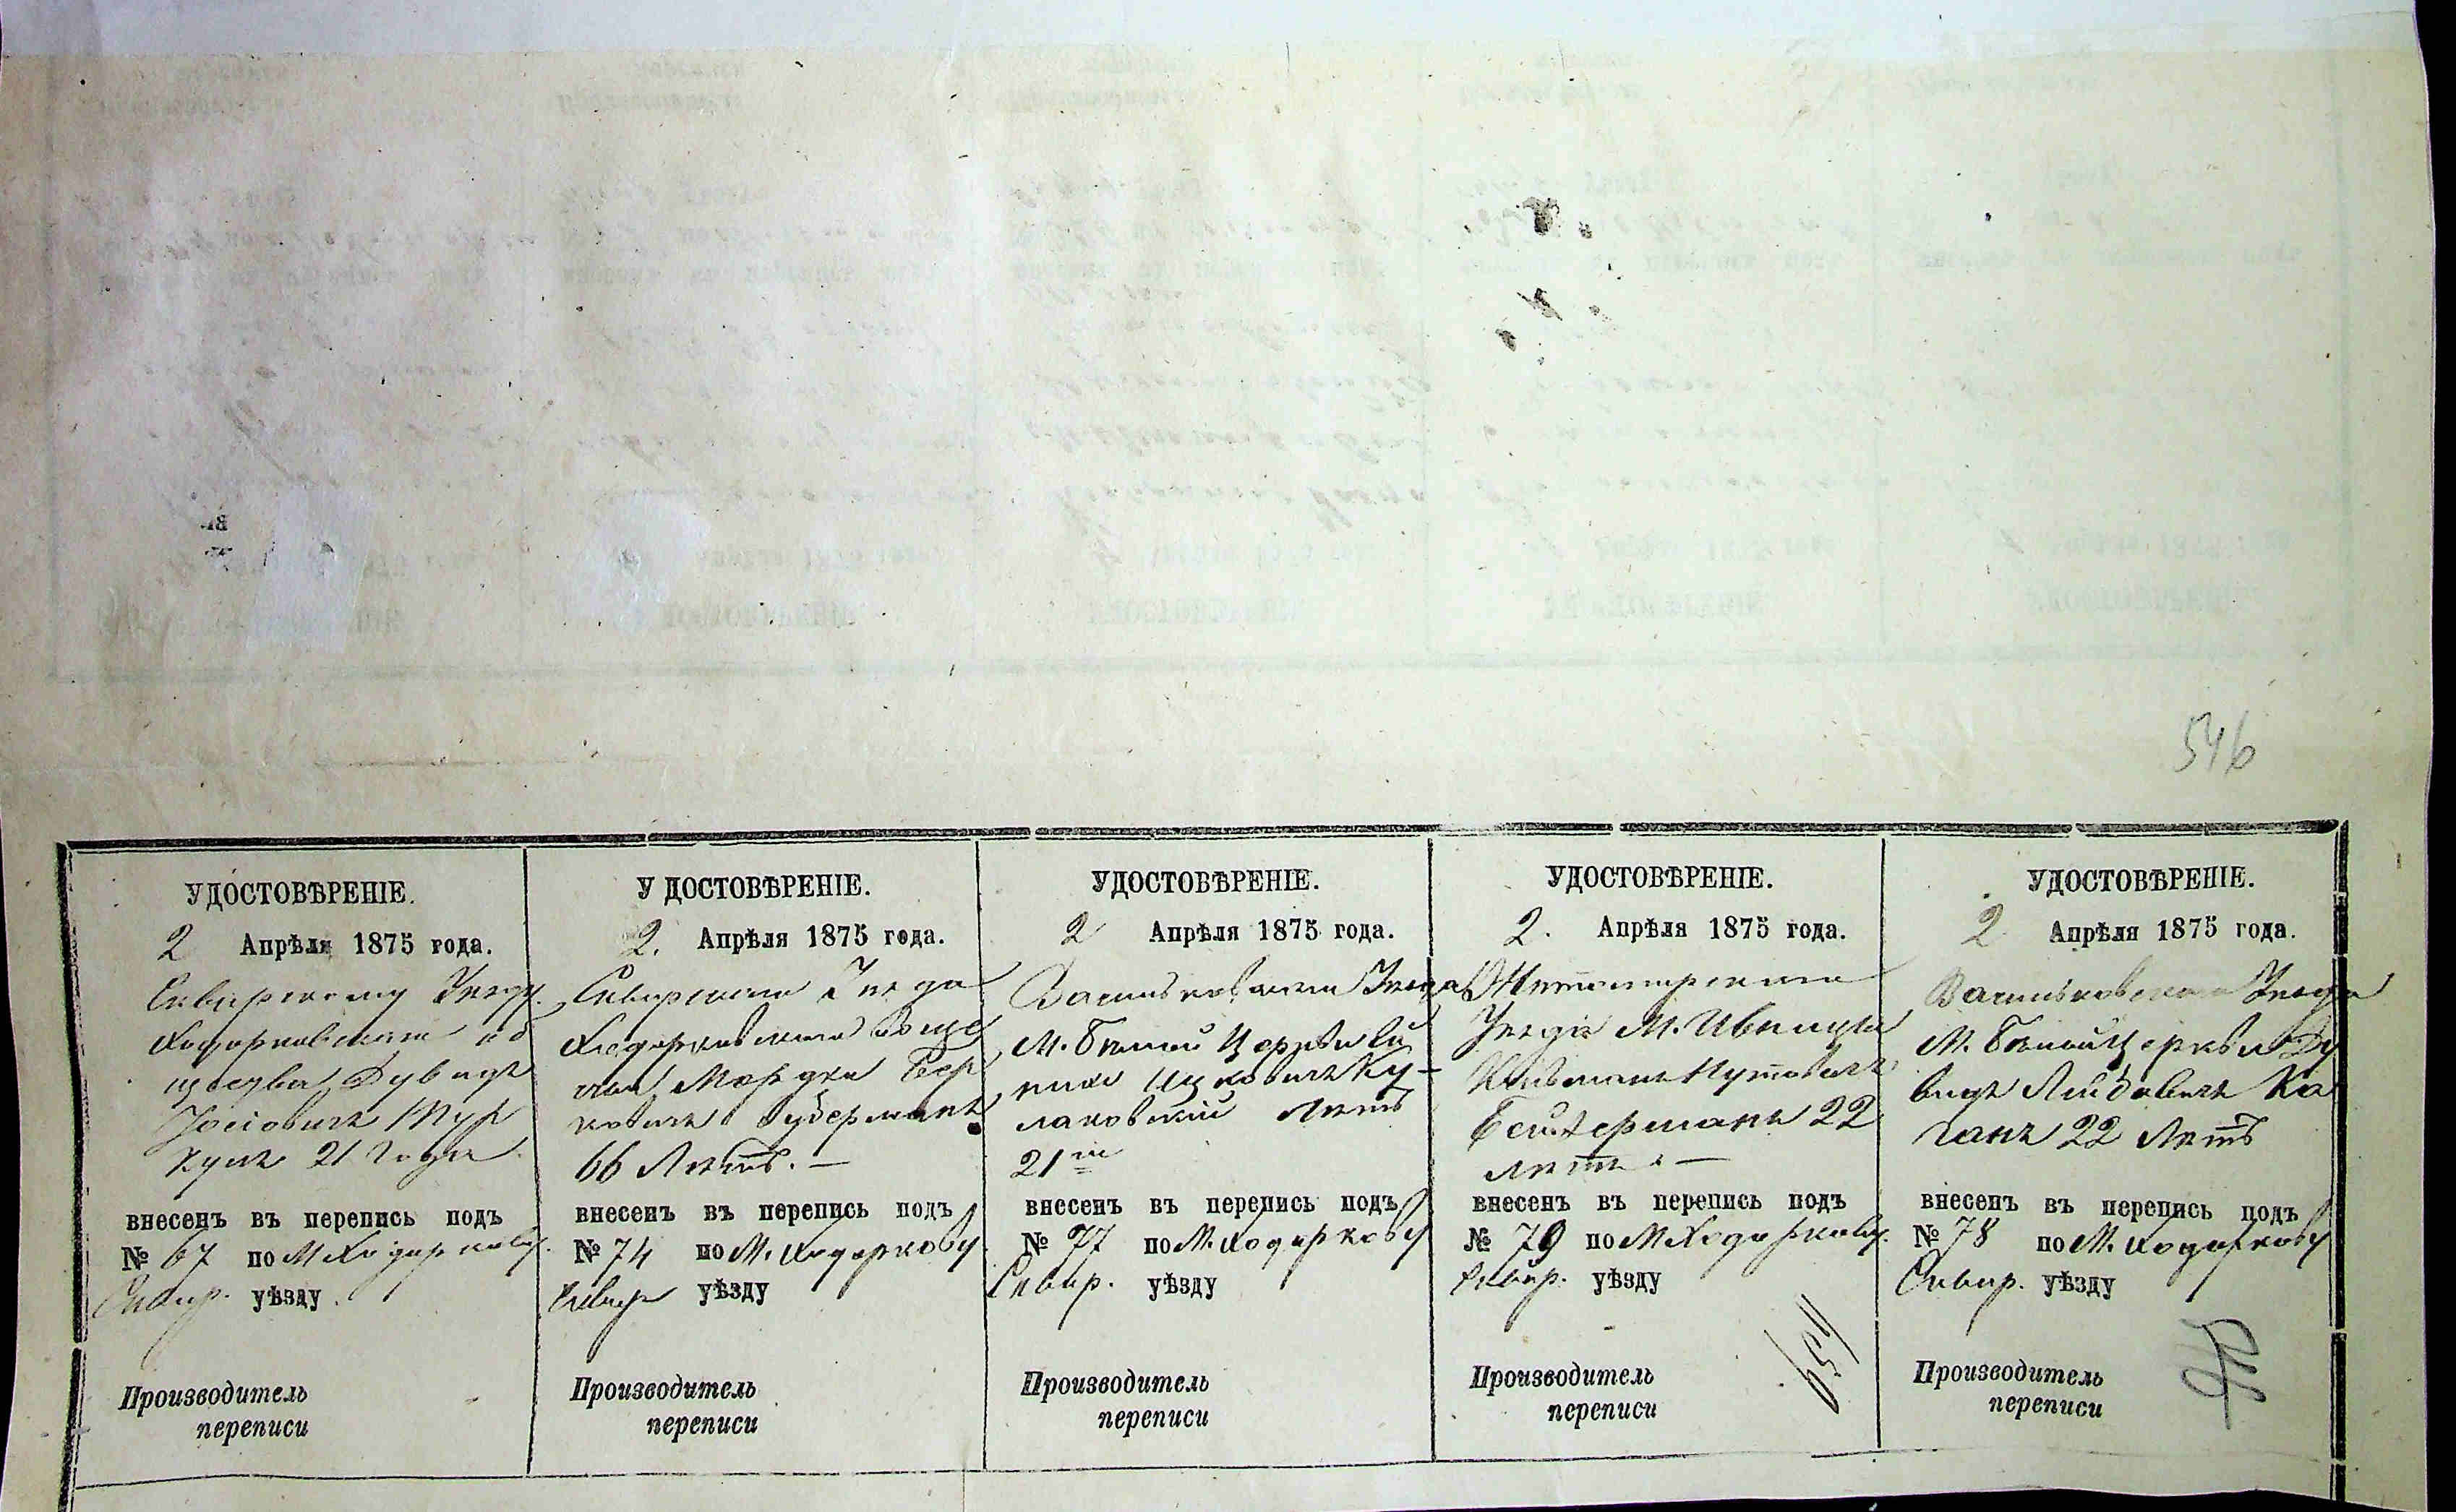 546
УДОСТОВѢРЕНІЕ.
2 Апрѣля 1875 года.
Сквирскому Уезду
Ходорковскаго об
щества Дувидъ
Іосіовичъ
21 Года
внесенъ въ перепись подъ
№ 67 по М Ходоркову.
Сквир. уѣзду.
Производитель
переписи
УДОСТОВѢРЕНІЕ.
2. Апрѣля 1875 года.
Сквирскаго Уезда
Ходорковскаго Обще
ства Мордко Бер
ковичъ Губерманъ
66 Летъ. —
внесенъ въ перепись подъ
№ 74 по М. Ходоркову
Сквир уѣзду
Производитель
переписи
УДОСТОВѢРЕНІЕ.
2 Апрѣля 1875 года.
Васильковскаго Уезда
М. Белой Церкви
Ицковичъ Ку-
лаковскій Летъ
21
внесенъ въ перепись подъ
№ 77 по М. Ходоркову
Сквир. уѣзду
Производитель
переписи
УДОСТОВѢРЕНІЕ.
2. Апрѣля 1875 года.
Житомирскаго
Уезда М. Ивницы
22
летъ. —
внесенъ въ перепись подъ
№ 79 по М Ходоркову.
Сквир. уѣзду
Производитель
переписи
УДОСТОВѢРЕНІЕ.
2 Апрѣля 1875 года.
Васильковскаго Уезда
М. Белой Церкви Ду
видъ Лейбовичъ Ка
ганъ 22 Летъ
внесенъ въ перепись подъ
№ 78 по М. Ходоркову
Сквир. уѣзду
Производитель
переписи